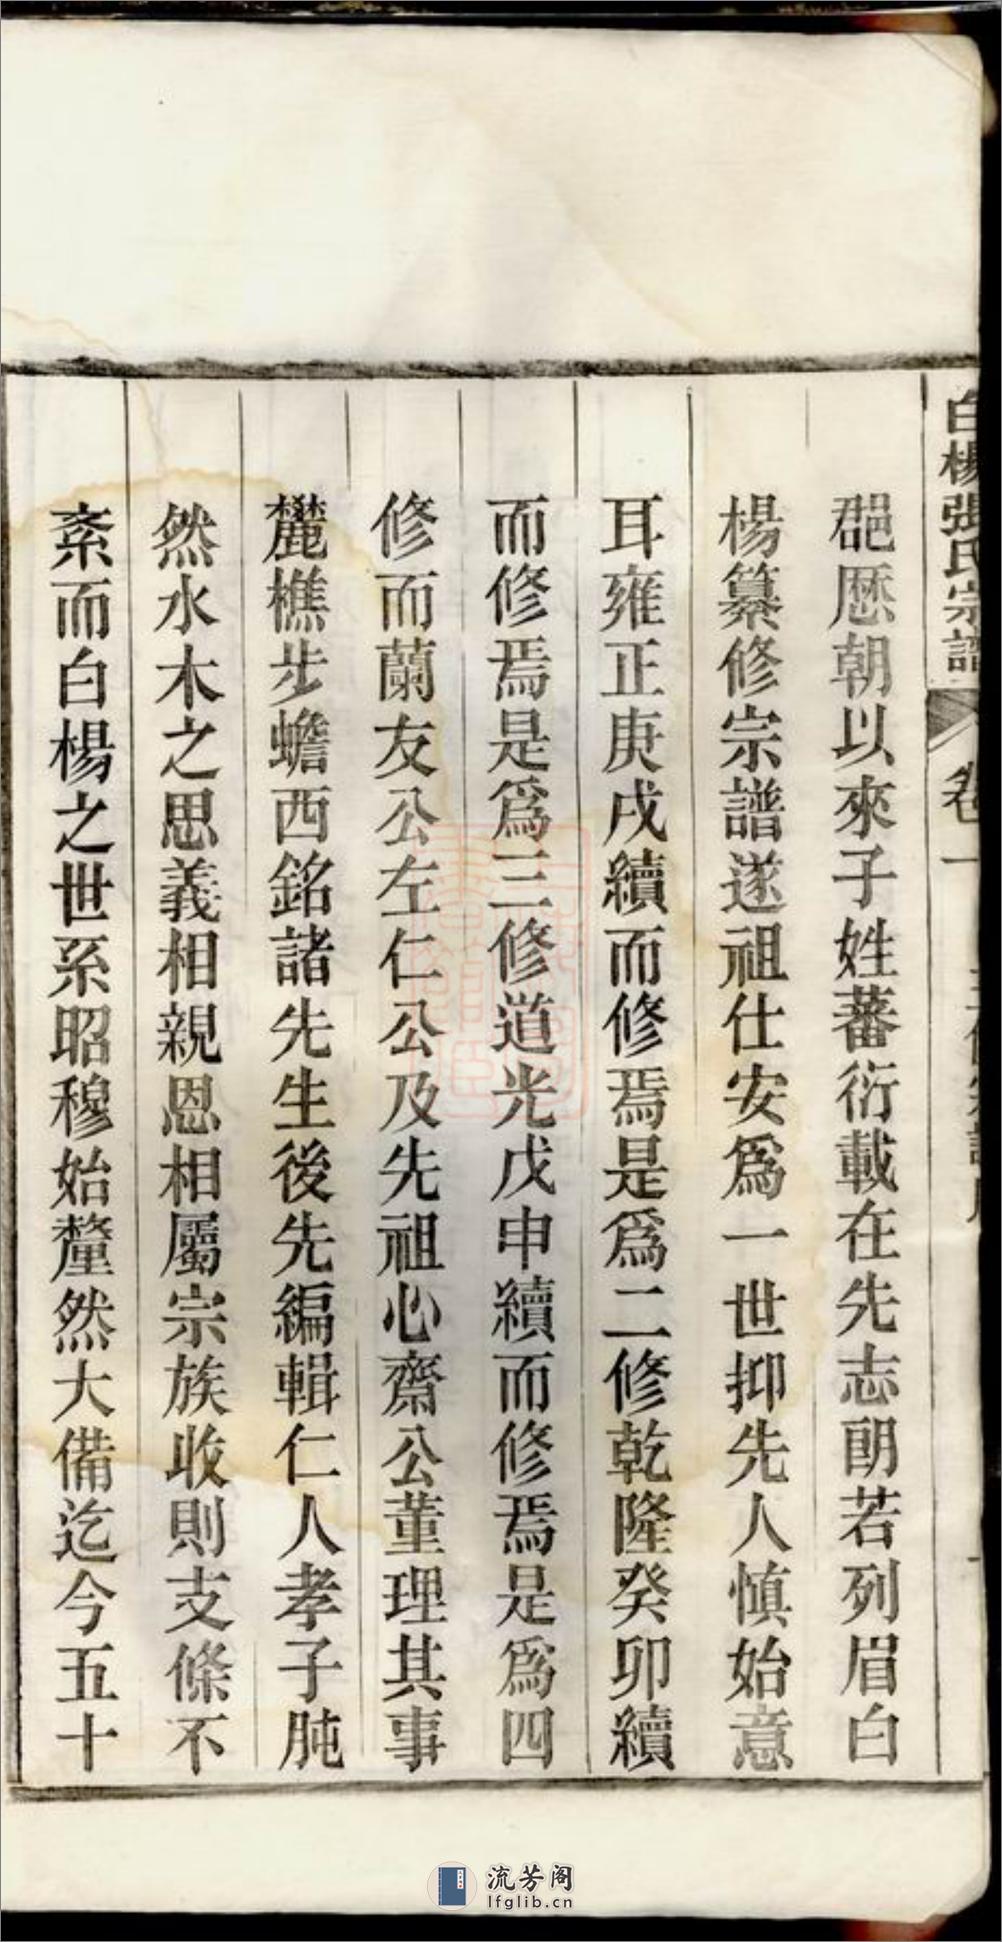 白楊張氏宗譜 卷一
郡歷朝以來子姓蕃衍載在先志朗若列眉白
楊纂修宗譜遂祖仕安爲一世抑先人愼始意
耳雍正庚戌續而修焉是爲二修乾隆癸卯續
而修焉是爲三修道光戊申續而修焉是爲四
修而蘭友公左仁公及先祖心齋公董理其事
麓樵步蟾西銘諸先生後先編輯仁人孝子肫
然水木之思義相親恩相屬宗族收則支條不
紊而白楊之世系昭穆始釐然大備迄今五十
流芳阁
lfglib.cn